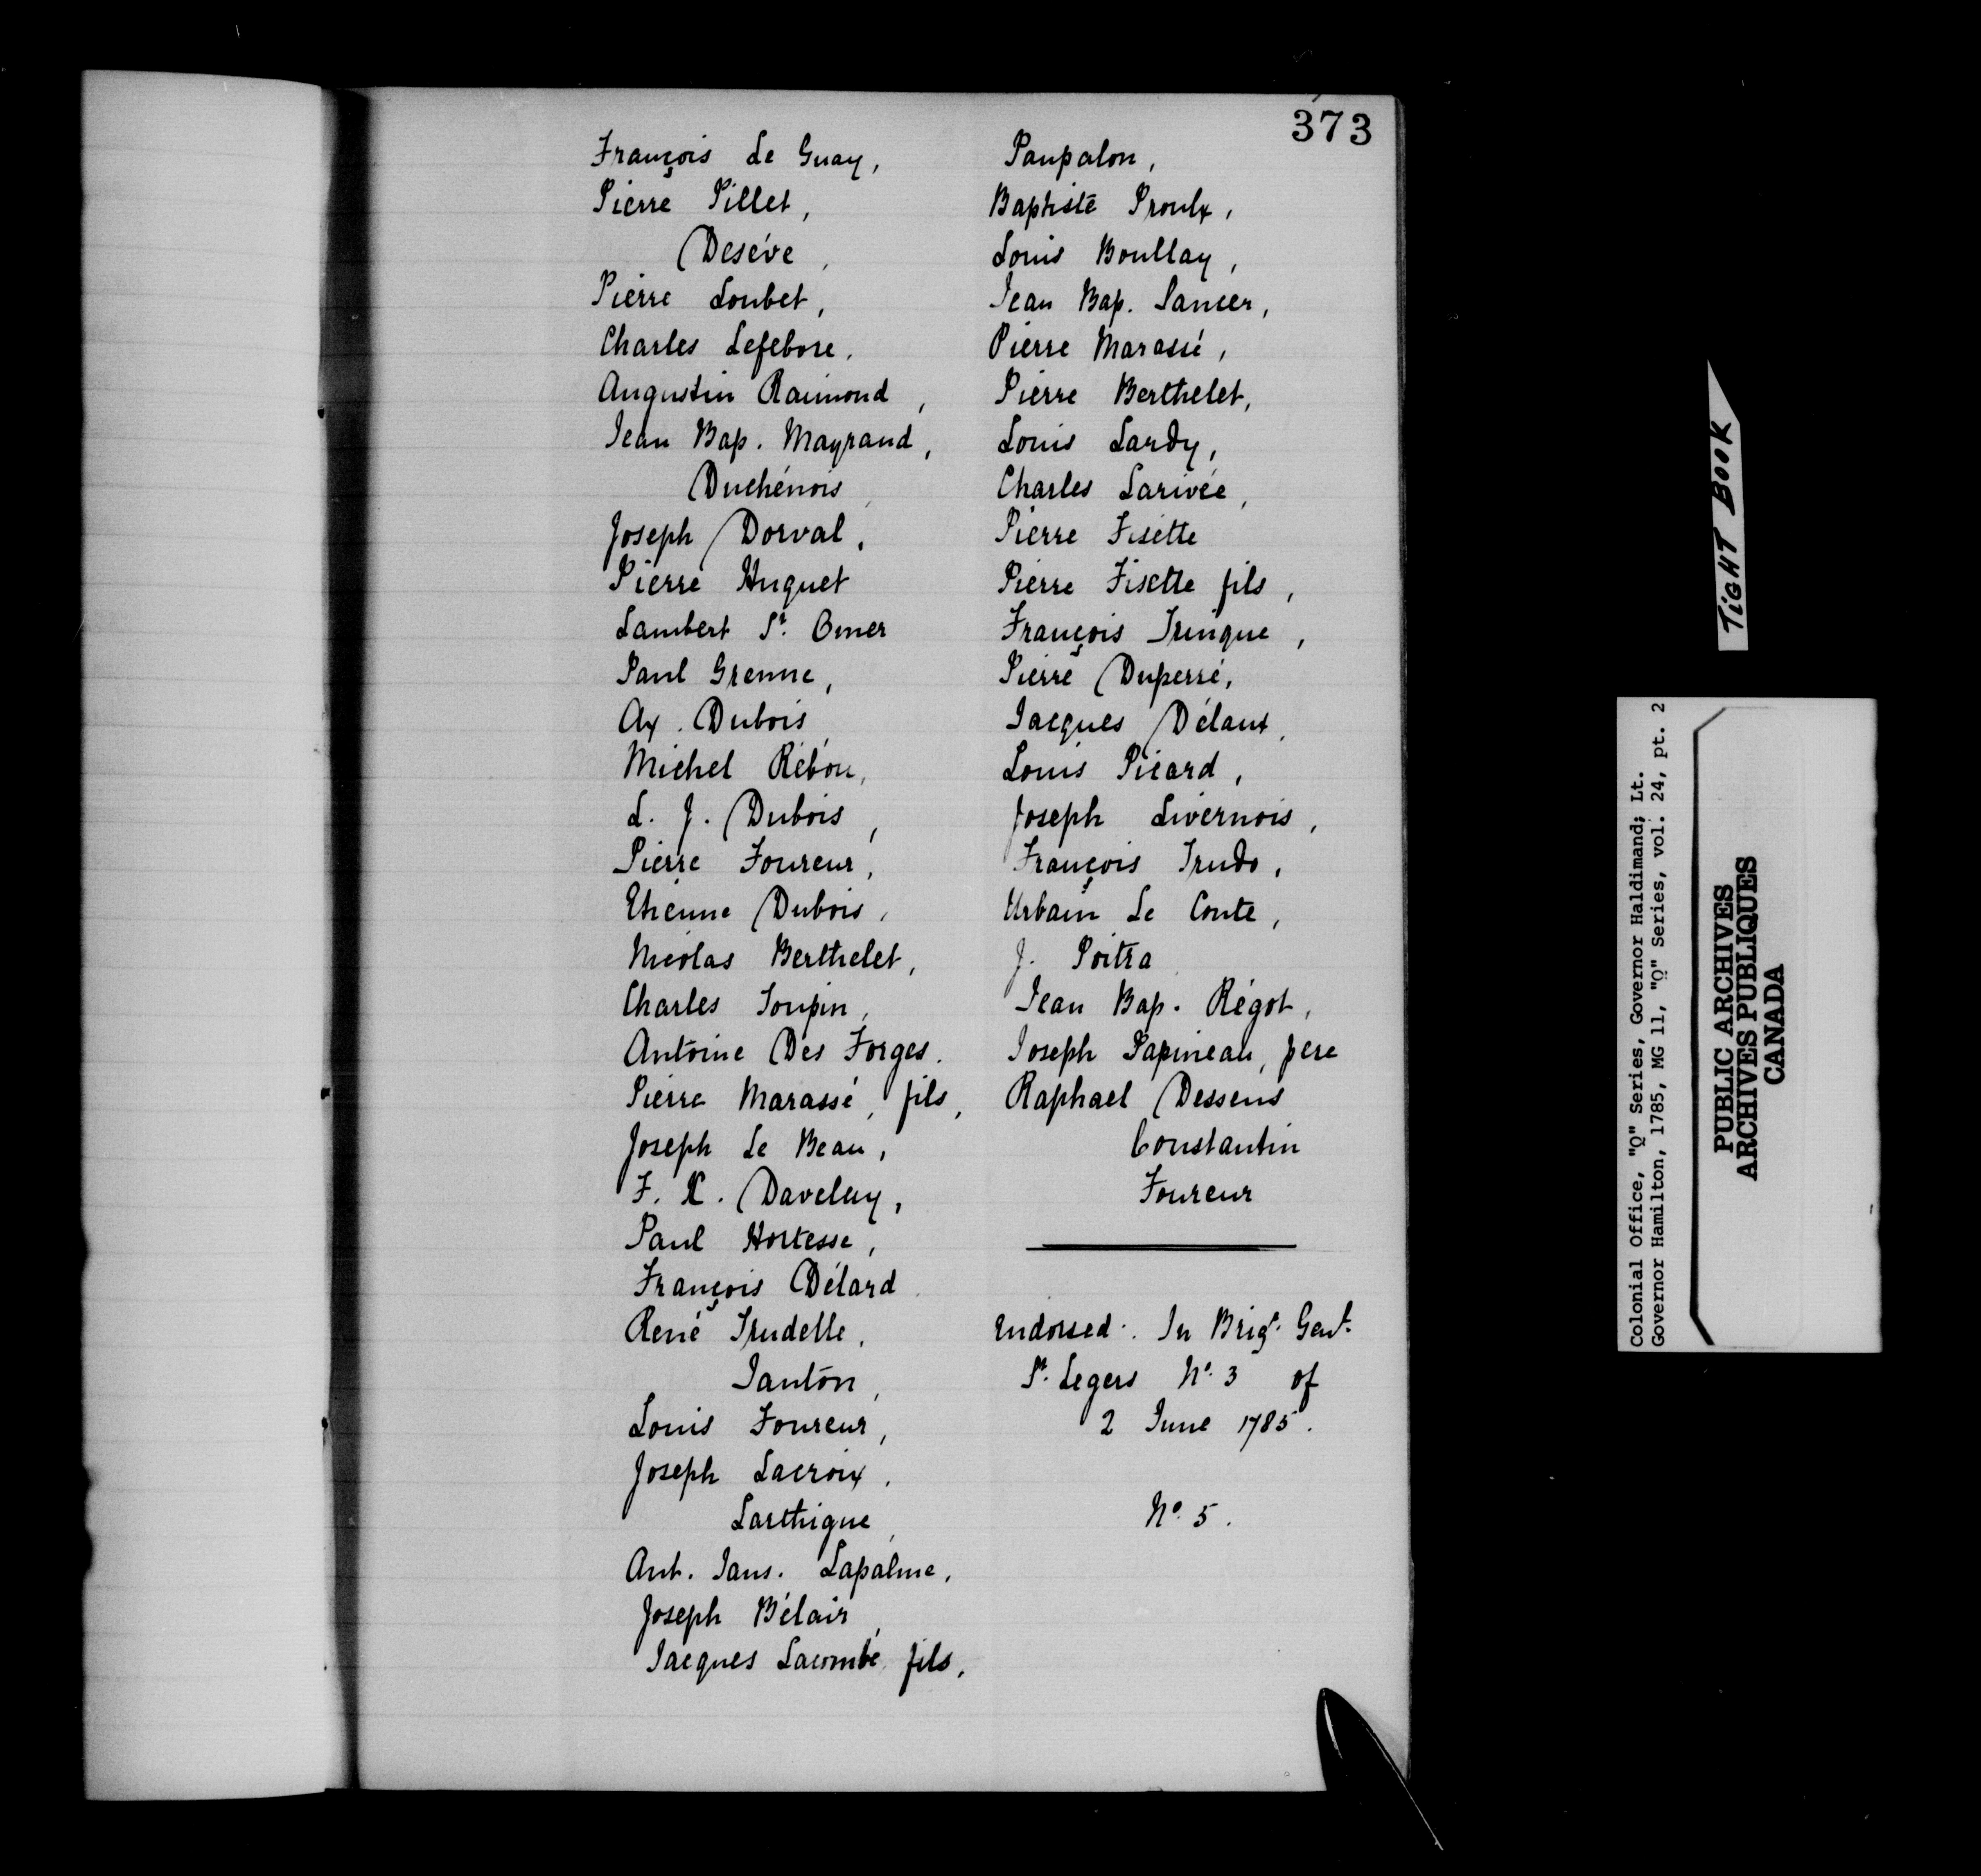 373
François Le Guay,
Pierre Pillet,
Deséve,
Pierre Loubet,
Charles Lefebvre,
Augustin Raimond,
Jean Bap. Mayrand,
Duchénois,
Joseph Dorval,
Pierre Huguet
Lambert St. Omer
Paul Grenne,
Ax. Dubois,
Michel Rébou,
L. J. Dubois,
Pierre Foureur,
Etienne Dubois,
Nicolas Berthelet,
Charles Toupin,
Antoine Des Forges.
Pierre Marassé, fils,
Joseph Le Beau,
F. X. Daveluy,
Paul Hortesse,
François Délard
René Trudelle,
Janton,
Louis Foureur,
Joseph Lacroix,
Larthigue,
Ant. Jans. Lapalme,
Joseph Bélair,
Jacques Lacombe fils,
Paupalon,
Baptiste Proulx,
Louis Boullay,
Jean Bap. Sancer,
Pierre Marassé,
Pierre Berthelet,
Louis Lardy,
Charles Larivée,
Pierre Fisette
Pierre Fisette fils,
François Tringue,
Pierre Duperré,
Jacques Délaux,
Louis Picard,
Joseph Livernois,
François Trudo,
Urbain Le Conte,
J. Poitra
Jean Bap. Régot,
Joseph Papineau, pere
Raphael Dessens
Constantin
Foureur
Endorsed. In Brigr. Genl.
St. Legers No. 3 of
2 June 1785.
No. 5.
TIGHT BOOK
Colonial Office, "Q" Series, Governor Haldimand; Lt.
Governor Hamilton, 1785, MG 11, "Q" Series, vol. 24, pt. 2
PUBLIC ARCHIVES
ARCHIVES PUBLIQUES
CANADA